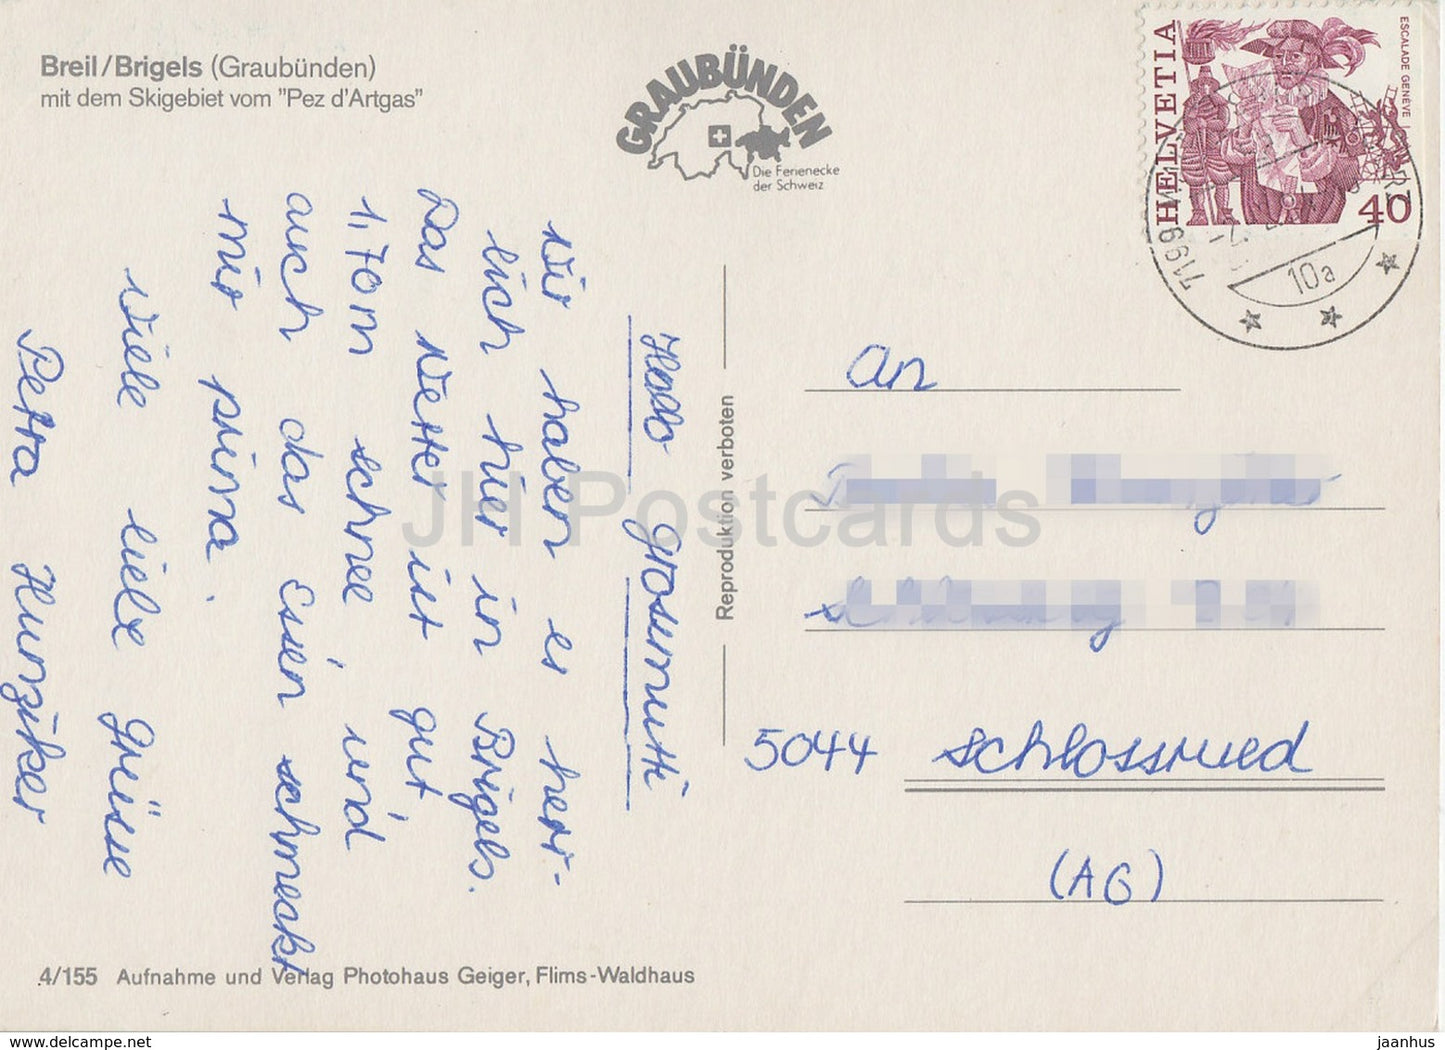 Breil/Brigels (Graubünden)
mit dem Skigebiet vom "Pez d'Artgas"
GRAUBÜNDEN
Die Ferienecke
der Schweiz
HELVETIA
ESCALADE GENÈVE
40
7199
10a
Hallo Grosmutti
Wir haben es herr-
lich hier in Brigels.
Das Wetter ist gut
1,70m schnee, und
auch das Essen schmeckt
mir prima.
Viele liebe Grüsse
Petra Hunziker
Reproduktion verboten
An
5044 Schlossrued
(AG)
4/155 Aufnahme und Verlag Photohaus Geiger, Flims-Waldhaus
JH Postcards
www.delcampe.net
jaanhus